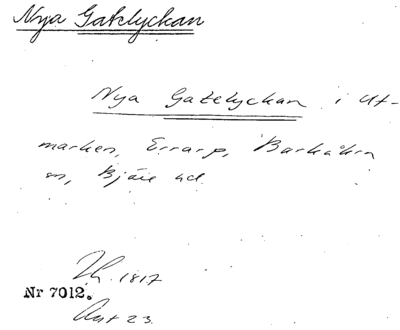 Nya Gatelyckan
Nya Gatelyckan i Ut-
marken, Errarp, Barkåkra
sn, Bjäre hd.
1817
Nr 7012.
Akt 23.